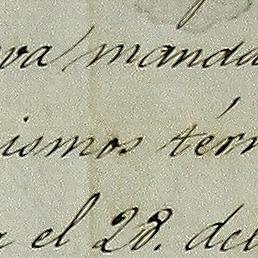 va manda
ismos tér
el 28. del